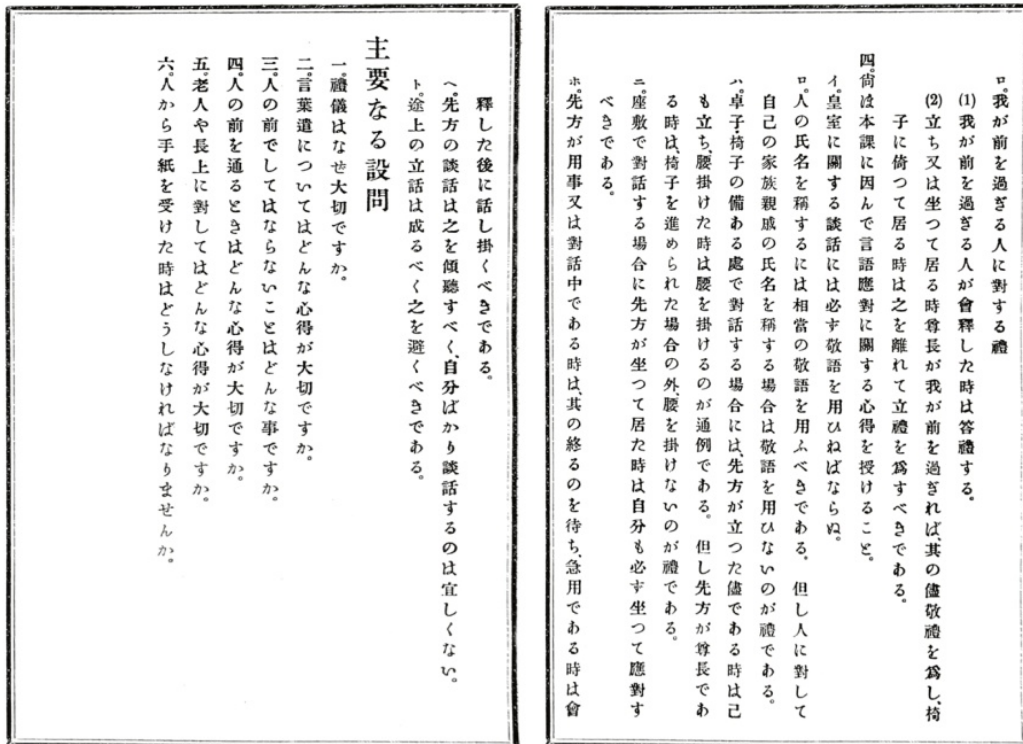 ロ。我が前を過ぎる人に對する禮
(1) 我が前を過ぎる人が會釋した時は答禮する。
(2) 立ち又は坐つて居る時尊長が我が前を過ぎれば、其の儘敬禮を爲し、椅
子に倚つて居る時は之を離れて立禮を爲すべきである。
四。尙ほ本課に因んで言語應對に關する心得を授けること。
イ。皇室に關する談話には必ず敬語を用ひねばならぬ。
ロ。人の氏名を稱するには相當の敬語を用ふべきである。 但し人に對して
自己の家族親戚の氏名を稱する場合は敬語を用ひないのが禮である。
ハ。卓子、椅子の備ある處で對話する場合には、先方が立つた儘である時は己
も立ち、腰掛けた時は腰を掛けるのが通例である。 但し先方が尊長であ
る時は、椅子を進められた場合の外、腰を掛けないのが禮である。
ニ。座敷で對話する場合に先方が坐つて居た時は自分も必ず坐つて應對す
べきである。
ホ。先方が用事又は對話中である時は、其の終るのを待ち、急用である時は會
釋した後に話し掛くべきである。
ヘ。先方の談話は之を傾聽すべく、自分ばかり談話するのは宜しくない。
ト。途上の立話は成るべく之を避くべきである。
主要なる設問
一。禮儀はなぜ大切ですか。
二。言葉遣についてはどんな心得が大切ですか。
三。人の前でしてはならないことはどんな事ですか。
四。人の前を通るときはどんな心得が大切ですか。
五。老人や長上に對してはどんな心得が大切ですか。
六。人から手紙を受けた時はどうしなければなりませんか。